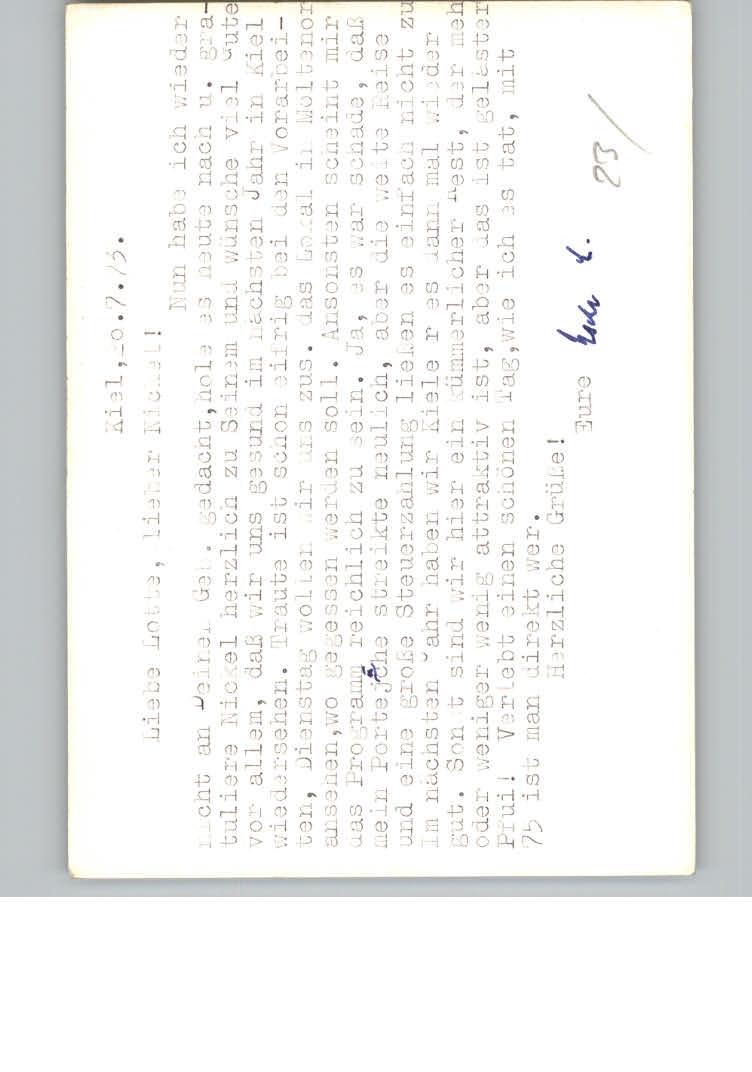 Kiel, 20.7.75.
Liebe Lotte, lieber Nickel!
Nun habe ich wieder
nicht an Deinen Geb. gedacht,hole es heute nach u. gra-
tuliere Nickel herzlich zu Seinem und wünsche viel Gute
vor allem, daß wir uns gesund im nächsten Jahr in Kiel
wiedersehen. Traute ist schon eifrig bei den Vorarbei-
ten, Dienstag wollen wir uns zus. das Lokal in Möltenor
ansehen,wo gegessen werden soll. Ansonsten scheint mir
das Programm reichlich zu sein. Ja, es war schade, daß
mein Portejche streikte neulich, aber die weite Reise
und eine große Steuerzahlung ließen es einfach nicht zu
Im nächsten Jahr haben wir Kieler es dann mal wieder
gut. Sonst sind wir hier ein kümmerlicher Rest, der meh
oder weniger wenig attraktiv ist, aber das ist geläster
Pfui! Verlebt einen schönen Tag,wie ich es tat, mit
75 ist man direkt wer.
Herzliche Grüße!
Eure
23/